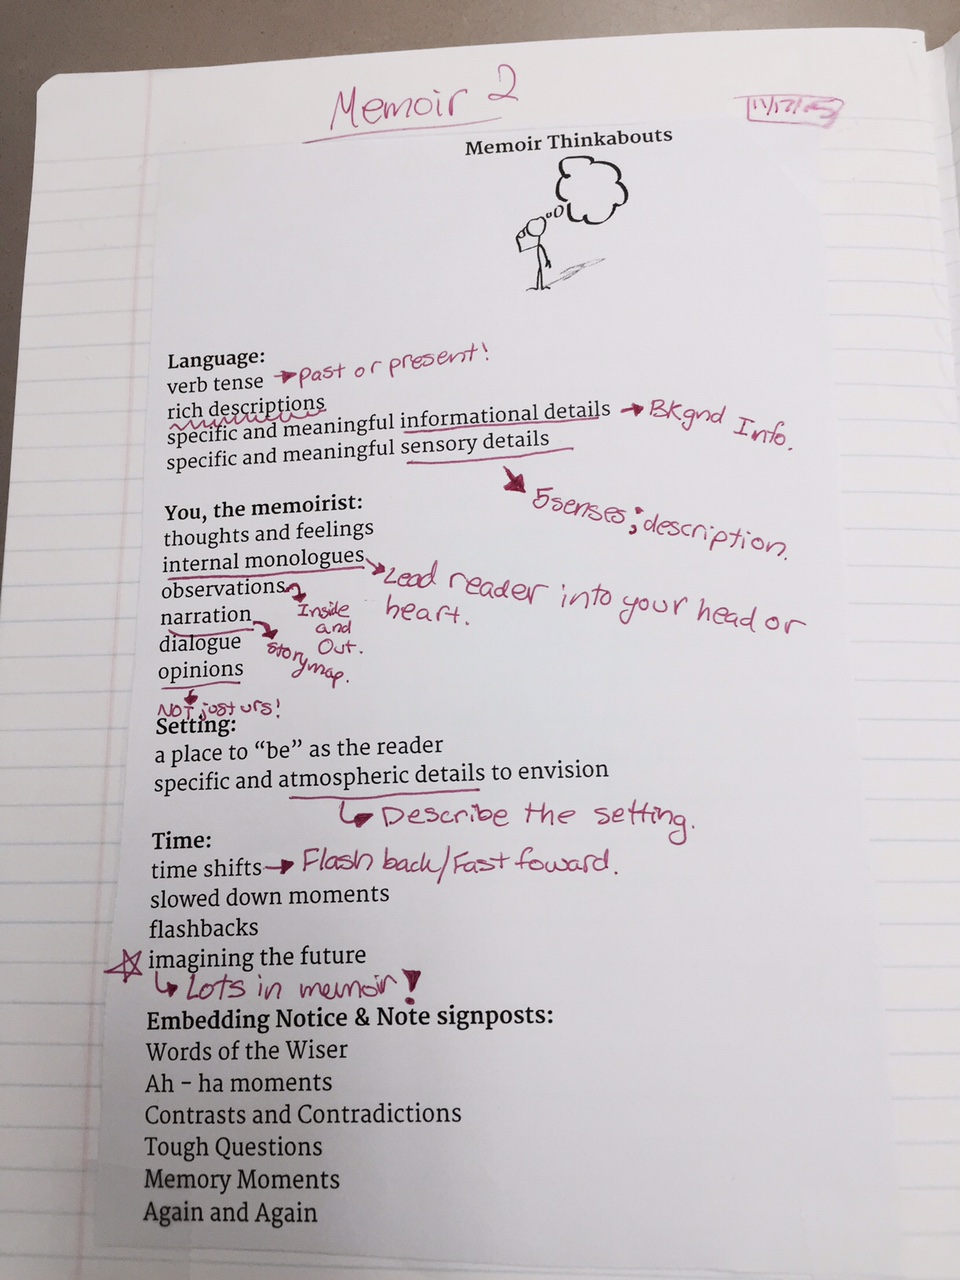 Memoir 2
Memoir Thinkabouts
Language:
verb tense → past or present!
rich descriptions
specific and meaningful informational details → Bkgnd Info.
specific and meaningful sensory details
5senses; description.
You, the memoirist:
thoughts and feelings
internal monologues → Lead reader into your head or
heart.
observations → Inside
and
Out.
narration → story map.
dialogue
opinions
NOT just urs!
Setting:
a place to “be” as the reader
specific and atmospheric details to envision
↳ Describe the setting.
Time:
time shifts → Flash back/Fast foward.
slowed down moments
flashbacks
☆ imagining the future
↳ Lots in memoir!
Embedding Notice & Note signposts:
Words of the Wiser
Ah – ha moments
Contrasts and Contradictions
Tough Questions
Memory Moments
Again and Again